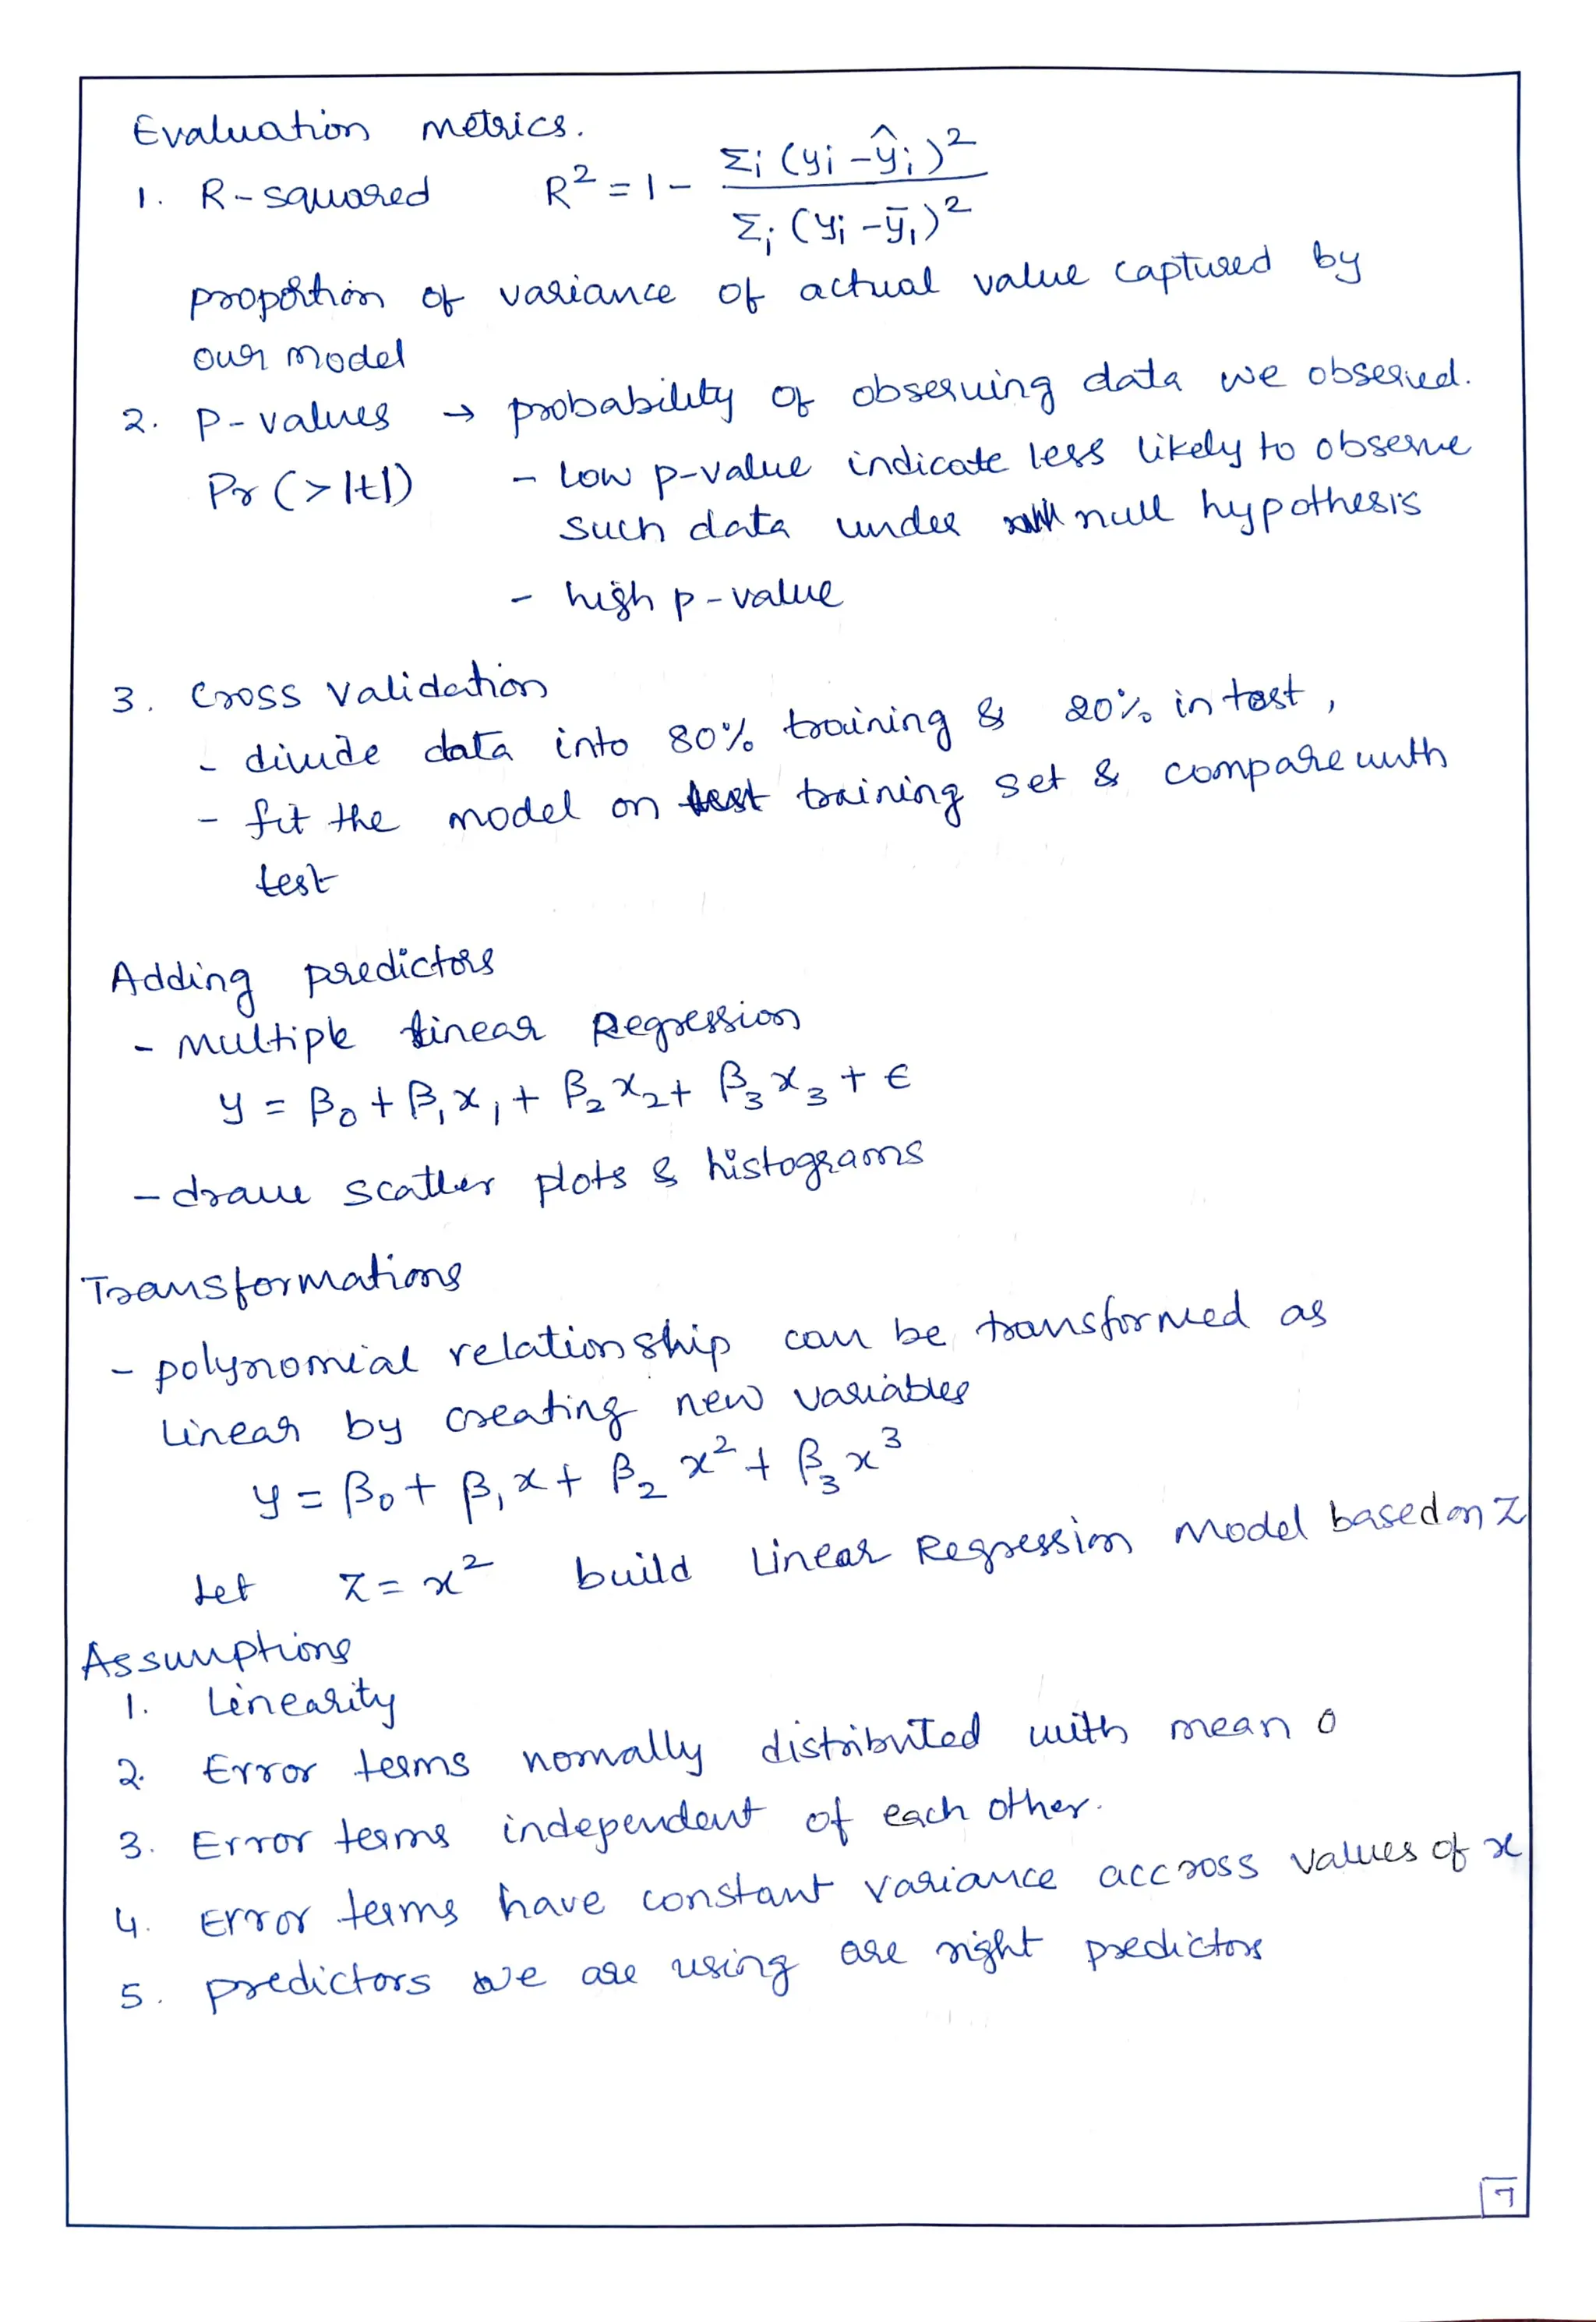 Evaluation metrics.
1. R-squared R² = 1 - Σi (yi - ŷi)² / Σi (yi - ȳi)²
proportion of variance of actual value captured by
our model
2. P-values → probability of observing data we observed.
Pr (>|t|) - low p-value indicate less likely to observe
such data under null hypothesis
- high p-value
3. Cross Validation
- divide data into 80% training & 20% in test,
- fit the model on training set & compare with
test
Adding predictors
- Multiple linear Regression
y = β₀ + β₁x₁ + β₂x₂ + β₃x₃ + ϵ
- draw scatter plots & histograms
Transformations
- polynomial relationship can be transformed as
linear by creating new variables
y = β₀ + β₁x + β₂x² + β₃x³
Let z = x² build Linear Regression Model based on z
Assumptions
1. Linearity
2. Error terms nomally distributed with mean 0
3. Error terms independent of each other.
4. Error terms have constant variance accross values of x
5. predictors we are using are right predictors
7